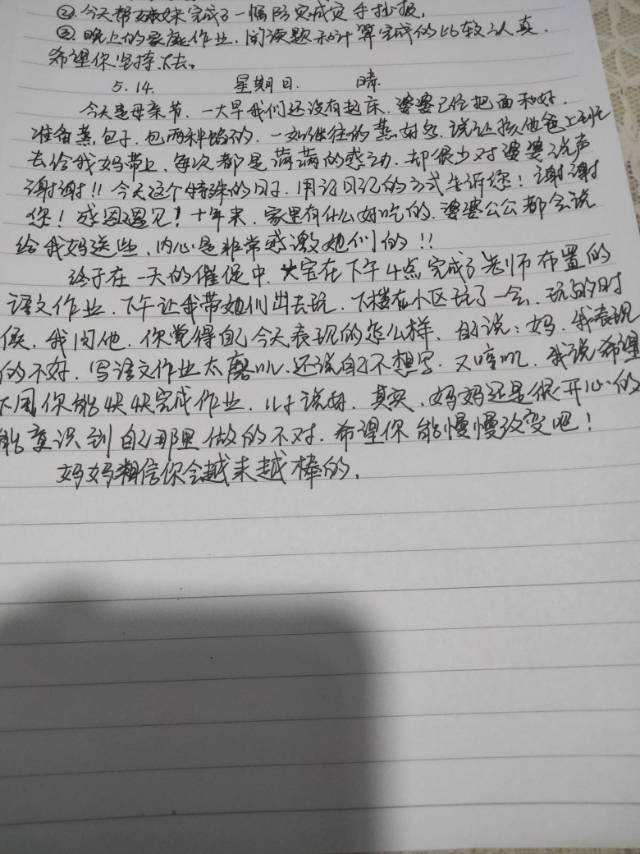 ②.今天帮妹妹完成了一幅防灾减灾手抄报,
③晚上的家庭作业.阅读题和计算完成的比较认真.
希望你坚持下去。
5.14. 星期日. 晴.
今天是母亲节.一大早我们还没有起床.婆婆已经把面和好.
准备蒸包子.包两种馅的.一如继往的蒸好多.说让孩他爸上班
去给我妈带上.每次都是满满的感动.却很少对婆婆说声
谢谢!!今天这个特殊的日子.用记日记的方式告诉您!谢谢
您!感恩遇见!十年来.家里有什么好吃的.婆婆公公都会说
给我妈送些.内心是非常感激她们的!!
终于在一天的催促中.大宝在下午4点完成了老师布置的
语文作业.下午让我带她们出去玩.下楼在小区玩了一会.玩的时
候.我问他.你觉得自己今天表现的怎么样.他说:妈.我表现
的不好.写语文作业太磨叽.还说自己不想写.又哼叽.我说希望
下周你能快快完成作业.儿子说好.其实.妈妈还是很开心的
能意识到自己那里做的不对.希望你能慢慢改变吧!
妈妈相信你会越来越棒的.